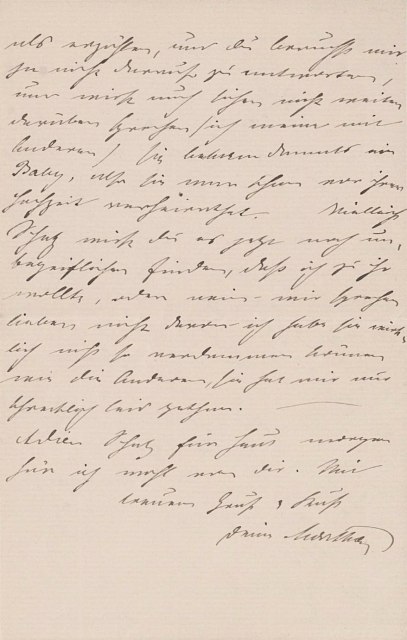 als erzählen, und du brauchst mir
ja nicht darauf zu antworten,
und wirst auch lieber nicht weiter
darüber sprechen (ich meine mit
Anderen) sie bekam damals ein
Baby, also sie war schon vor ihrer
Hochzeit verheirathet. Vielleicht
Schatz wirst du es jetzt noch un-
begreiflicher finden, daß ich zu ihr
wollte, aber nein - wir sprechen
lieber nicht davon ich habe sie wirk-
lich nicht so verdammen können
wie die Anderen, sie hat mir nur
schrecklich leid gethan.
Adieu Schatz für heut morgen
hör ich wohl von dir. Mit
treuem Gruß & Kuß
deine Martha